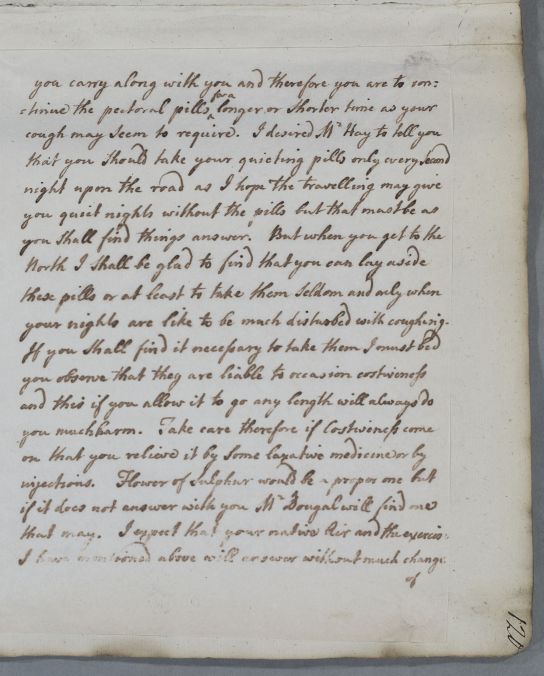 you carry along with you and therefore you are to con=
=tinue the pectoral pills for a longer or shorter time as your
cough may seem to require. I desired Mr Hay to tell you
that you should take your quieting pills only every second
night upon the road as I hope the travelling may give
you quiet nights without the pills but that must be as
you shall find things answer. But when you get to the
North I shall be glad to find that you can lay aside
these pills or at least to take them seldom and only when
your nights are like to be much disturbed with coughing.
If you shall find it necessary to take them I must bid
you observe that they are liable to occasion costiveness
and this if you allow it to go any length will always do
you much harm. Take care therefore if Costiveness come
on that you relieve it by some laxative medicine or by
injections. Flower of Sulphur would be a proper one but
if it does not answer with you Mr Dougal will find one
that may. I expect that your native Air and the exercise
I have mentioned above will answer without much change
of
120